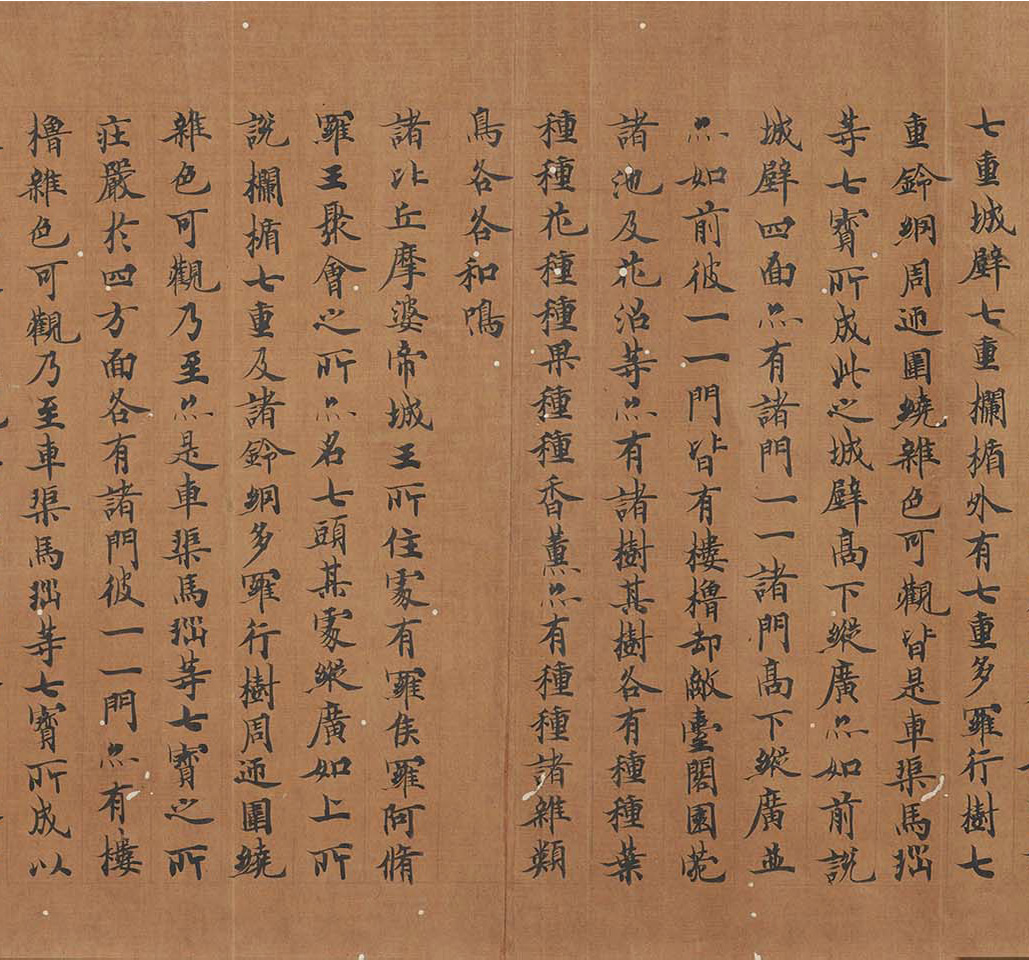 七重城壁七重欄楯外有七重多羅行樹七
重鈴網周迊圍繞雜色可觀皆是車渠馬瑙
等七寳所成此之城壁髙下縱廣亦如前說
城壁四面亦有諸門一一諸門髙下縱廣並
亦如前彼一一門皆有樓櫓却敵臺閣園菀
諸池及花沼等亦有諸樹其樹各有種種葉
種種花種種果種種香薰亦有種種諸雜類
鳥各各和鳴
諸比丘摩婆帝城王所住處有羅侯羅阿脩
羅王聚會之所亦名七頭其處縱廣如上所
說欄楯七重及諸鈴網多羅行樹周迊圍繞
雜色可觀乃至亦是車渠馬瑙等七寳之所
莊嚴於四方面各有諸門彼一一門亦有樓
櫓雜色可觀乃至車渠馬瑙等七寳所成以